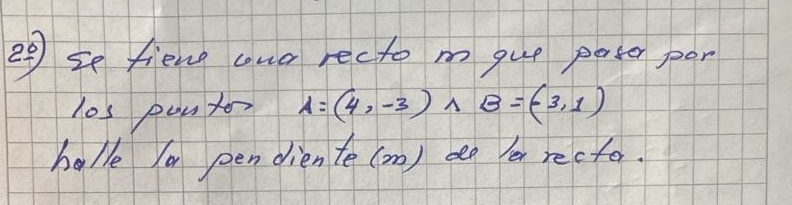 2º) Se tiene una recto m que pasa por
los puntos A=(4,-3) ∧ B=(-3,1)
halle la pendiente (m) de la recta.